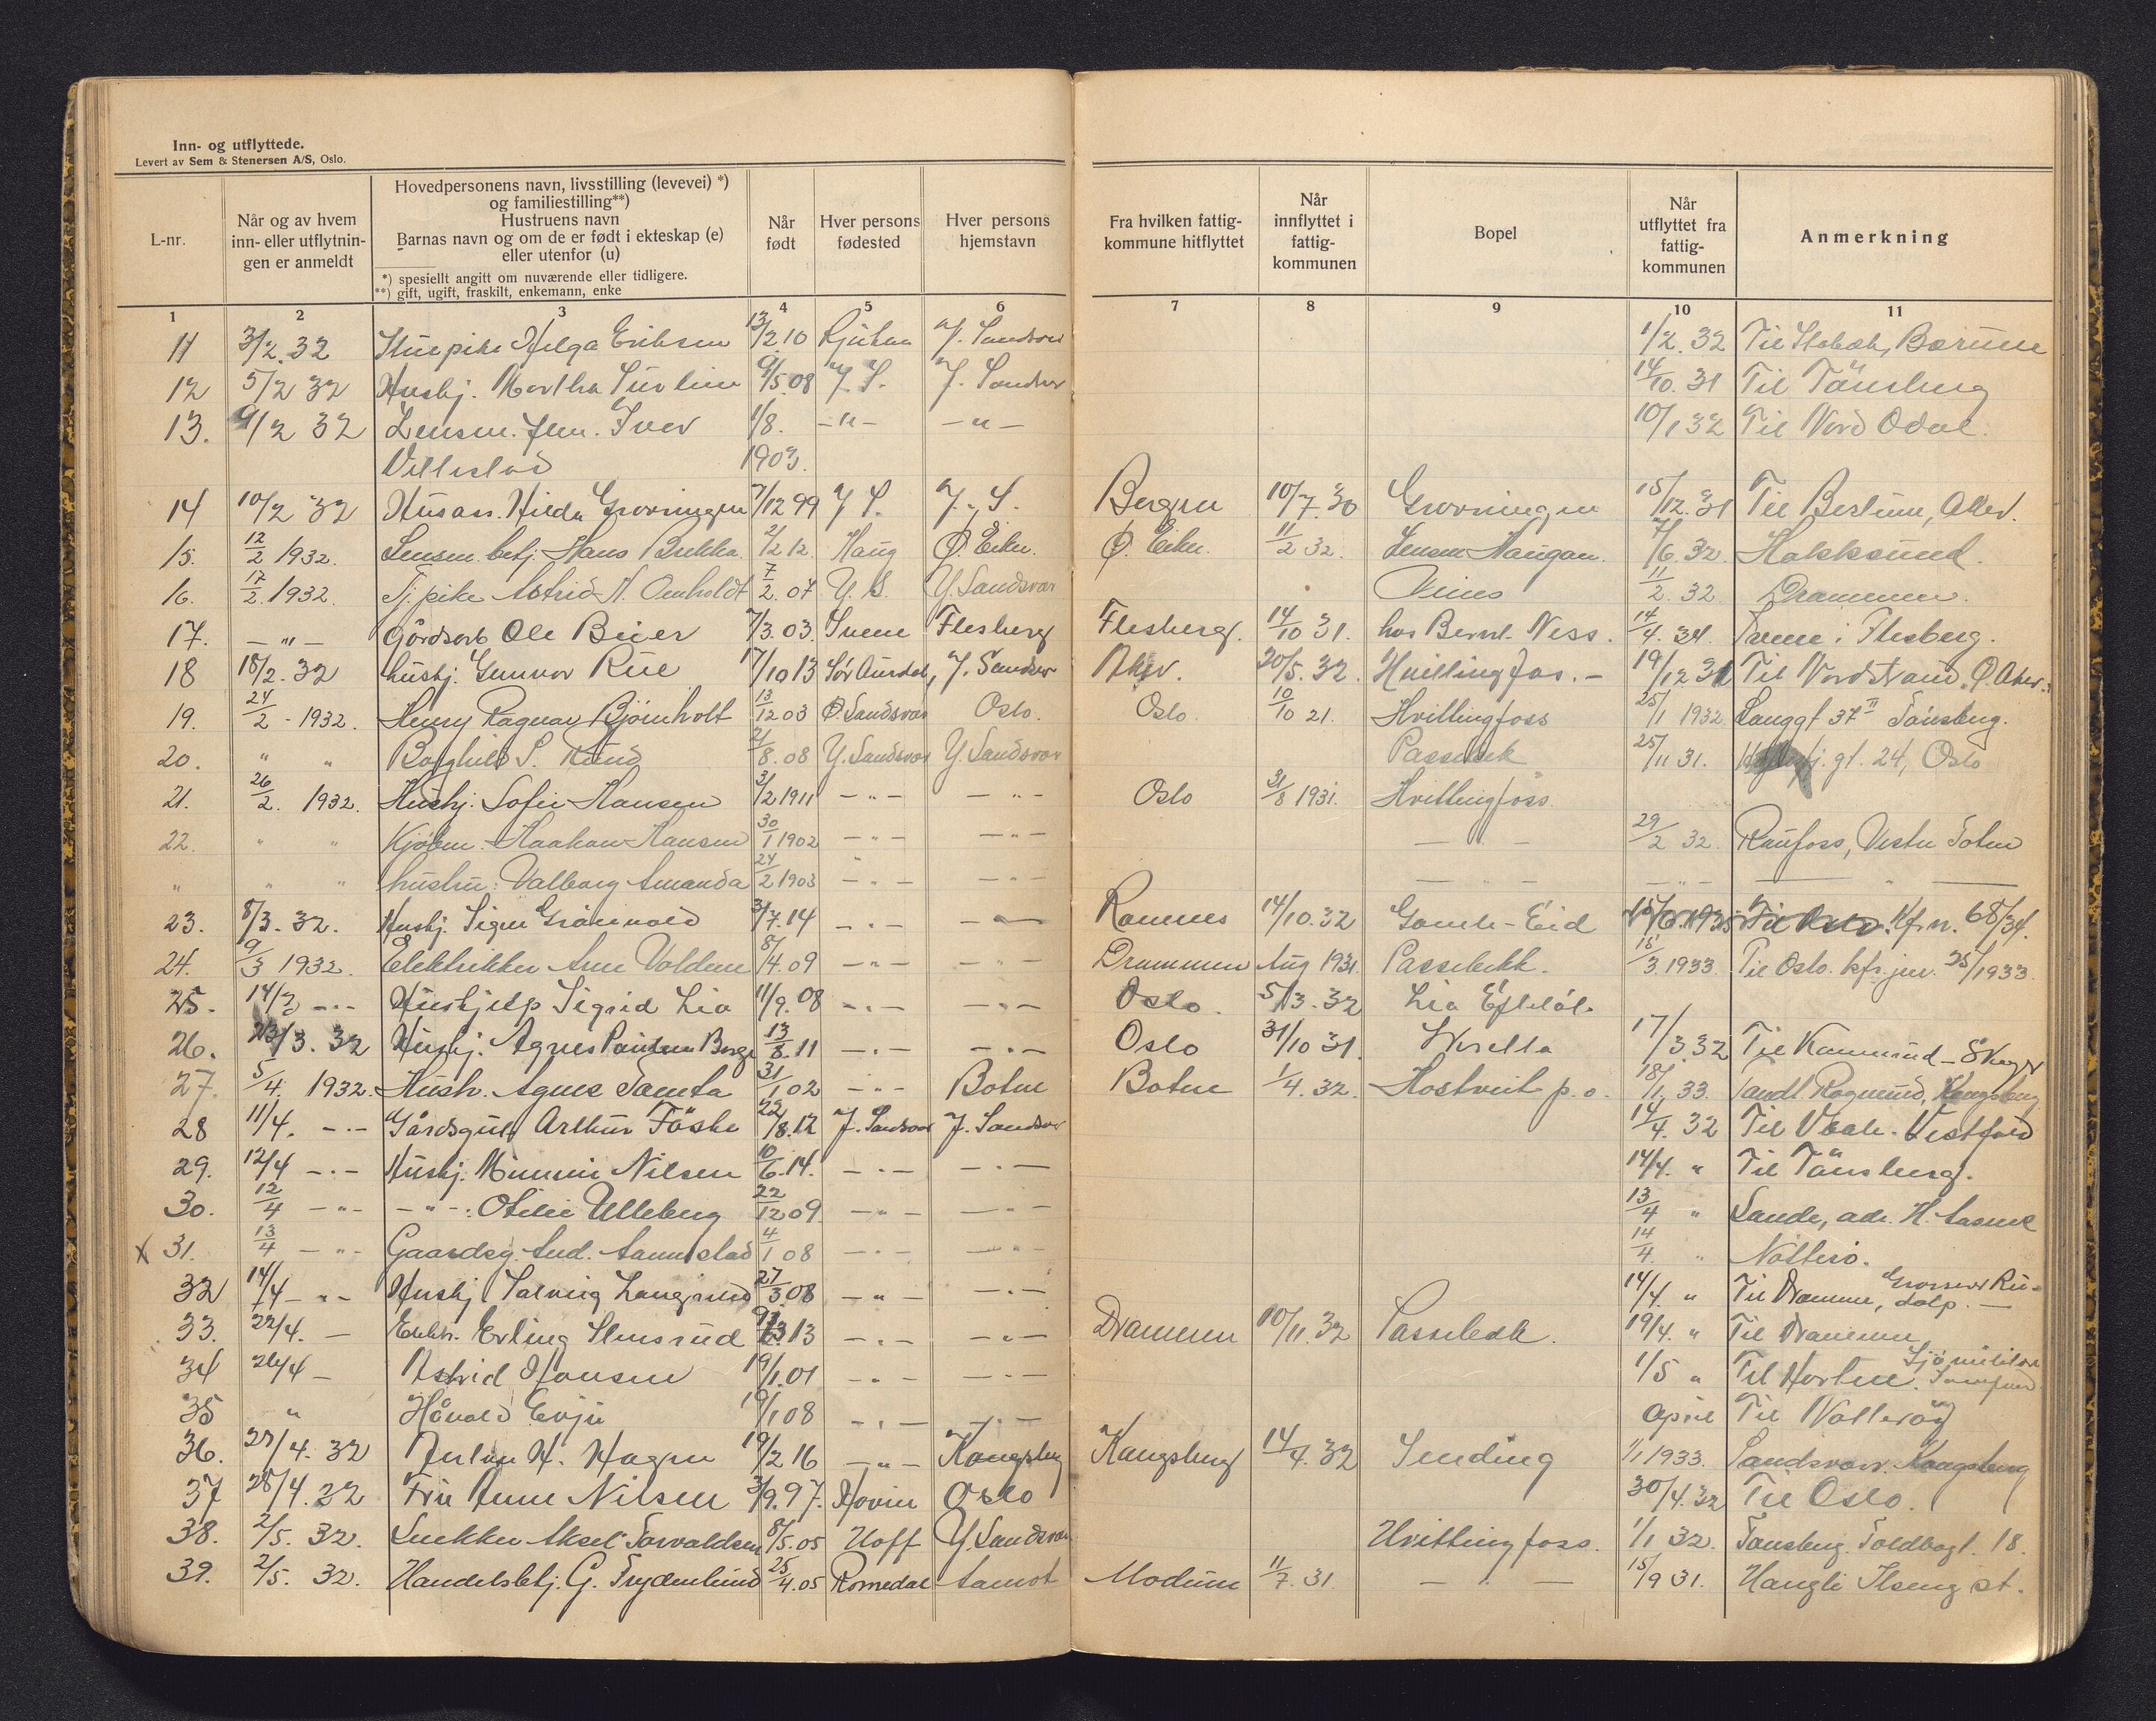 Inn- og utflyttede.
Levert av Sem & Stenersen A/S, Oslo.
L-nr.
Når og av hvem
inn- eller utflytnin-
gen er anmeldt
Hovedpersonens navn, livsstilling (levevei) *)
og familiestilling**)
Hustruens navn
Barnas navn og om de er født i ekteskap (e)
eller utenfor (u)
*) spesiellt angitt om nuværende eller tidligere.
**) gift, ugift, fraskilt, enkemann, enke
Når
født
Hver persons
fødested
Hver persons
hjemstavn
Fra hvilken fattig-
kommune hitflyttet
Når
innflyttet i
fattig-
kommunen
Bopel
Når
utflyttet fra
fattig-
kommunen
Anmerkning
1 2 3 4 5 6 7 8 9 10 11
11 3/2.32 Helga Eriksen 13/2.10 Rjukan Y. Sandsver 1/2.32 Til Stabek, Bærum
12 5/2 32 Hushj. Martha 9/5.08 Y. S. Y. Sandsver 14/10.31 Til Tønsberg
13. 9/2 32 Lensm. flm. Iver 1/8. -"- -"- 10/1 32 Til Nord Odal.
Villestad 1903.
14 10/2 32 Husass. Hilda Grovningen 7/12 99 Y S. Y. S. Bergen 10/7.30 Grovningen 15/12.31 Til Berlin, Aker.
15. 12/2 1932. Lensm. betj. Hans Brekka 2/2 12. Haug Ø. Eiker. Ø. Eiker. 11/2 32. Lensm Haugan. 7/6.32. Hokksund.
16. 17/2.1932. Tj.pike Astrid N. Omholdt 7/2.07 Y. S. Y. Sandsvær 11/2.32. Drammen.
17. -"- Gårdsarb Ole Beier 7/3.03. Svene Flesberg Flesberg. 14/10 31. hos Bernt Ness. 14/4. Svene i Flesberg.
18 18/2.32 hushj. Gunvor Rue 17/10 13 Sør Aurdal, Y. Sandsver Aker. 20/5.32. Hvittingfos.- 19/12 31 Til Nordstrand, Ø. Aker.
19. 24/2 - 1932. Henry Ragnar Bjørnholt 13/12 03 Ø. Sandsvær Oslo. Oslo. 10/10 21. Hvittingfoss 25/1 1932. Langgt 37 II Tønsberg.
20. " " Borghild S. 2/8.08 Y. Sandsvær Y. Sandsvær Passebek 25/11 31. gt. 24, Oslo
21. 26/2. 1932. Hushj. Sofie Hansen 3/2 1911 -"- -"- Oslo 31/8 1931. Hvittingfoss
22. " " Kjøbm. Haakon Hansen 30/1 1902 -"- -"- -"- 29/2 32. Raufoss, Vestre Toten
" " " hustru: Valborg Amanda 24/2 1903 -"- -"- -"- -"- -"-
23. 8/3.32. Hushj. Signe Grønvold 3/7.14 -"- -"- Ramnes 14/10.32 Gamle-Eid Kfr n. 68/34.
24. 9/3 1932. Elektriker Arne Volden 8/4.09 -"- -"- Drammen Aug 1931. Passebekk. 15/3.1933. Til Oslo. kfr. jnr. 25/1933
25. 14/3 -"- Hushjelp Sigrid Lia 11/9.08 -"- -"- Oslo. 5/3.32 Lia Efteløt
26. 23/3.32 Hushj. Agnes Paulsen Berge 13/8.11 -"- -"- Oslo 31/10 31. 17/3.32 Til
27. 5/4. 1932. Hush. Agnes 31/1.02 -"- Botne Botne 1/4.32. Hostveit p.o. 18/1.33. Kongsberg
28 11/4. -"- Gårdsgut Arthur Føske 22/8.12 Y. Sandsver Y. Sandsver 14/4.32 Til Våle. Vestfold
29. 12/4 -"- Hushj. Minnie Nilsen 10/6.14. -"- -"- 14/4. " Til Tønsberg.
30. 12/4 -"- -"-: Otilie Ulleberg 22/12 09 -"- -"- 13/4 " Sande, adr. H. Aasnes
x 31. 13/4 -"- Gaardsg. And. Aannestad 4/1 08 -"- -"- 14/4. " Nøtterø.
32 14/4 -"- Hushj Solveig Langerud 27/3 08 -"- -"- 14/4. " Til Drammen,
33. 22/4. - Elektr. Erling Stensrud 13 -"- -"- Drammen 10/11.32 Passebek. 19/4. " Til Drammen
34 26/4 - Astrid Hansen 19/1.01 -"- -"- 1/5 " Til Horten.
35 " Håvald Evju 19/1 08 -"- -"- April Til Nøtterøy
36. 27/4.32 H. Hagen 19/2 16 -"- Kongsberg Kongsberg 14/4.32 Sending 1/1 1933. Sandsvær. Kongsberg
37 28/4.32 Fru Anne Nilsen 3/9.97. Hovin Oslo 30/4.32 Til Oslo.
38. 2/5. 32. Snekker Aksel Torvaldsen 8/5.05 Hoff Y. Sandsvær Hvittingfoss. 1/1 32. Tønsberg. Toldbogt. 18.
39. 2/5. 32. Handelsbetj. G. Frydenlund 25/4.05 Romedal Aamot Modum 11/7.31. -"- 15/9 31. Ilseng st.